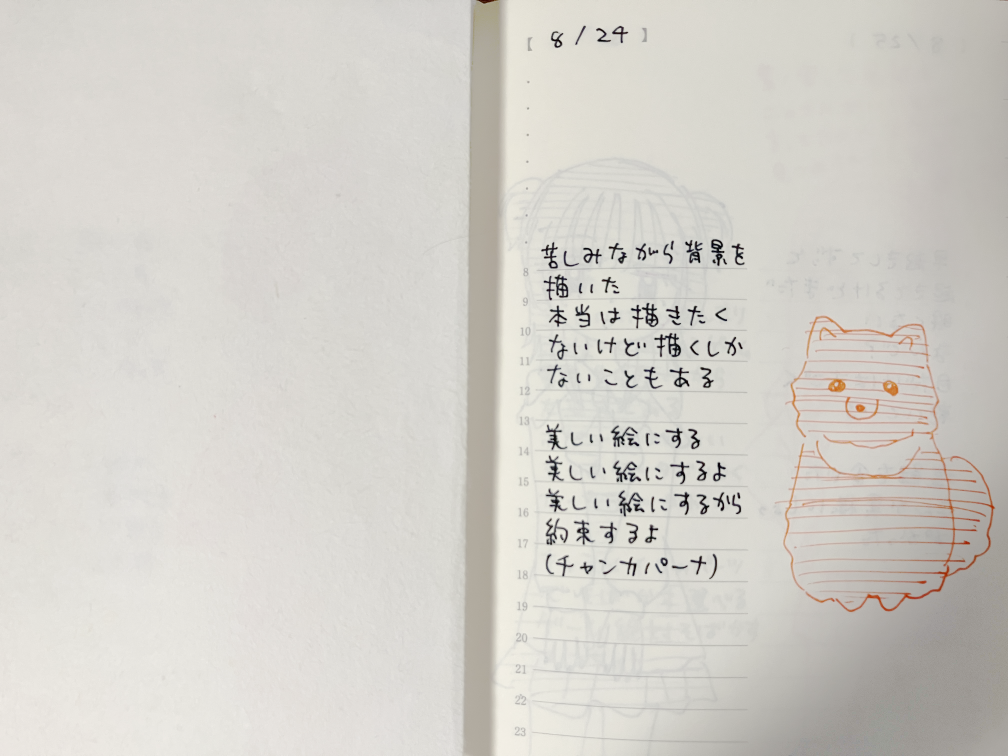 【 8/24 】
苦しみながら背景を
8
描いた
9
本当は描きたく
10
ないけど描くしか
11
ないこともある
12
13
美しい絵にする
14
美しい絵にするよ
15
美しい絵にするから
16
約束するよ
17
(チャンカパーナ)
18
19
20
21
22
23